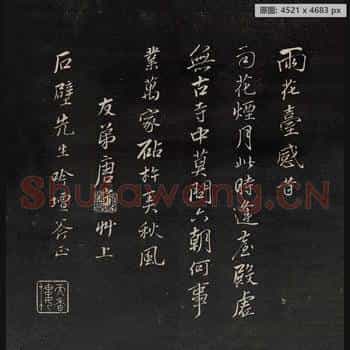 原图: 4521 x 4683 px
雨花臺感昔
花煙月此時逢臺殿虛
無古寺中莫問六朝何事
業萬家砧杵秋風
友弟唐艸上
石壁先生吟壇正
Shufawang.CN